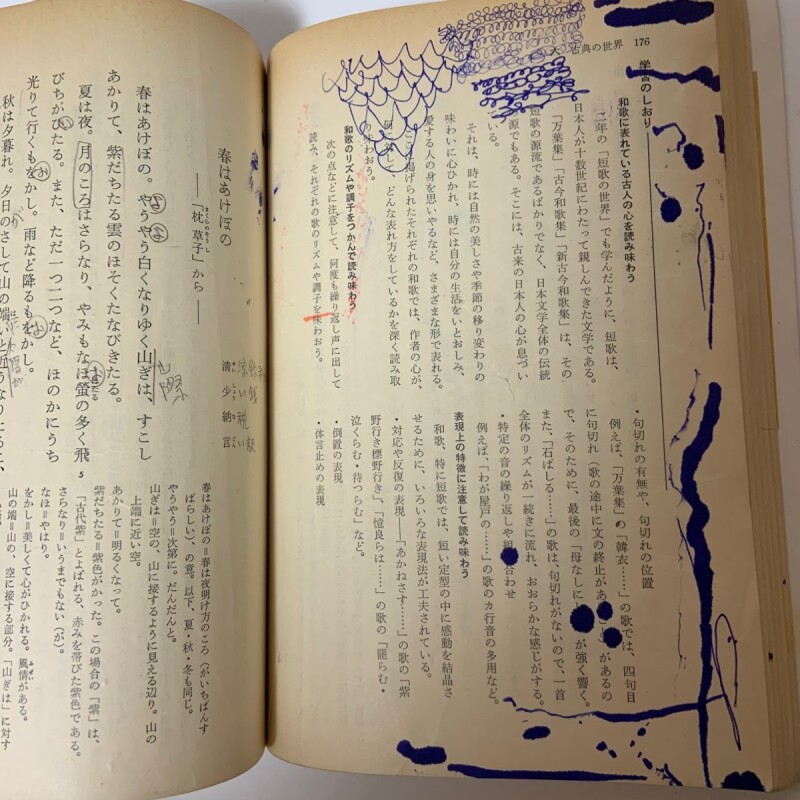 古典の世界 176
学習のしおり
和歌に表れている古人の心を読み味わう
二年の「短歌の世界」でも学んだように、短歌は、
日本人が十数世紀にわたって親しんできた文学である。
「万葉集」「古今和歌集」「新古今和歌集」は、その
短歌の源流であるばかりでなく、日本文学全体の伝統
の源でもある。そこには、古来の日本人の心が息づい
ている。
それは、時には自然の美しさや季節の移り変わりの
味わいに心ひかれ、時には自分の生活をいとおしみ、
愛する人の身を思いやるなど、さまざまな形で表れる。
掲げられたそれぞれの和歌では、作者の心が、
どんな表れ方をしているかを深く読み取
味わおう。
和歌のリズムや調子をつかんで読み味わう
次の点などに注意して、何度も繰り返し声に出して
読み、それぞれの歌のリズムや調子を味わおう。
・句切れの有無や、句切れの位置
例えば、「万葉集」の「韓衣……」の歌では、四句目
に句切れ（歌の途中に文の終止が）があるの
で、そのために、最後の「母なしに」が強く響く。
また、「石ばしる……」の歌は、句切れがないので、一首
全体のリズムが一続きに流れ、おおらかな感じがする。
・特定の音の繰り返しや組合わせ
例えば、「わが屋戸の……」の歌のカ行音の多用など。
表現上の特徴に注意して読み味わう
和歌、特に短歌では、短い定型の中に感動を結晶さ
せるために、いろいろな表現法が工夫されている。
・対応や反復の表現――「あかねさす……」の歌の「紫
野行き標野行き」「憶良らは……」の歌の「罷らむ・
泣くらむ・待つらむ」など。
・倒置の表現
・体言止めの表現
春はあけぼの
――「枕草子」から――
まくらのそうし
清少納言
春はあけぼの。やうやう白くなりゆく山ぎは、すこし
よ よ
山際
あかりて、紫だちたる雲のほそくたなびきたる。
夏は夜。月のころはさらなり、やみもなほ蛍の多く飛
お
ほたる
5
びちがひたる。また、ただ一つ二つなど、ほのかにうち
い
光りて行くもをかし。雨など降るもをかし。
お お
秋は夕暮れ。夕日のさして山の端いと近うなりたるに、
が
春はあけぼの＝春は夜明け方のころ（がいちばんす
ばらしい）、の意。以下、夏・秋・冬も同じ。
やうやう＝次第に。だんだんと。
山ぎは＝空の、山に接するように見える辺り。山の
上端に近い空。
あかりて＝明るくなって。
紫だちたる＝紫色がかった。この場合の「紫」は、
「古代紫」とよばれる、赤みを帯びた紫色である。
さらなり＝いうまでもない（が）。
なほ＝やはり。
をかし＝美しくて心がひかれる。風情がある。
ふぜい
山の端＝山の、空に接する部分。「山ぎは」に対す